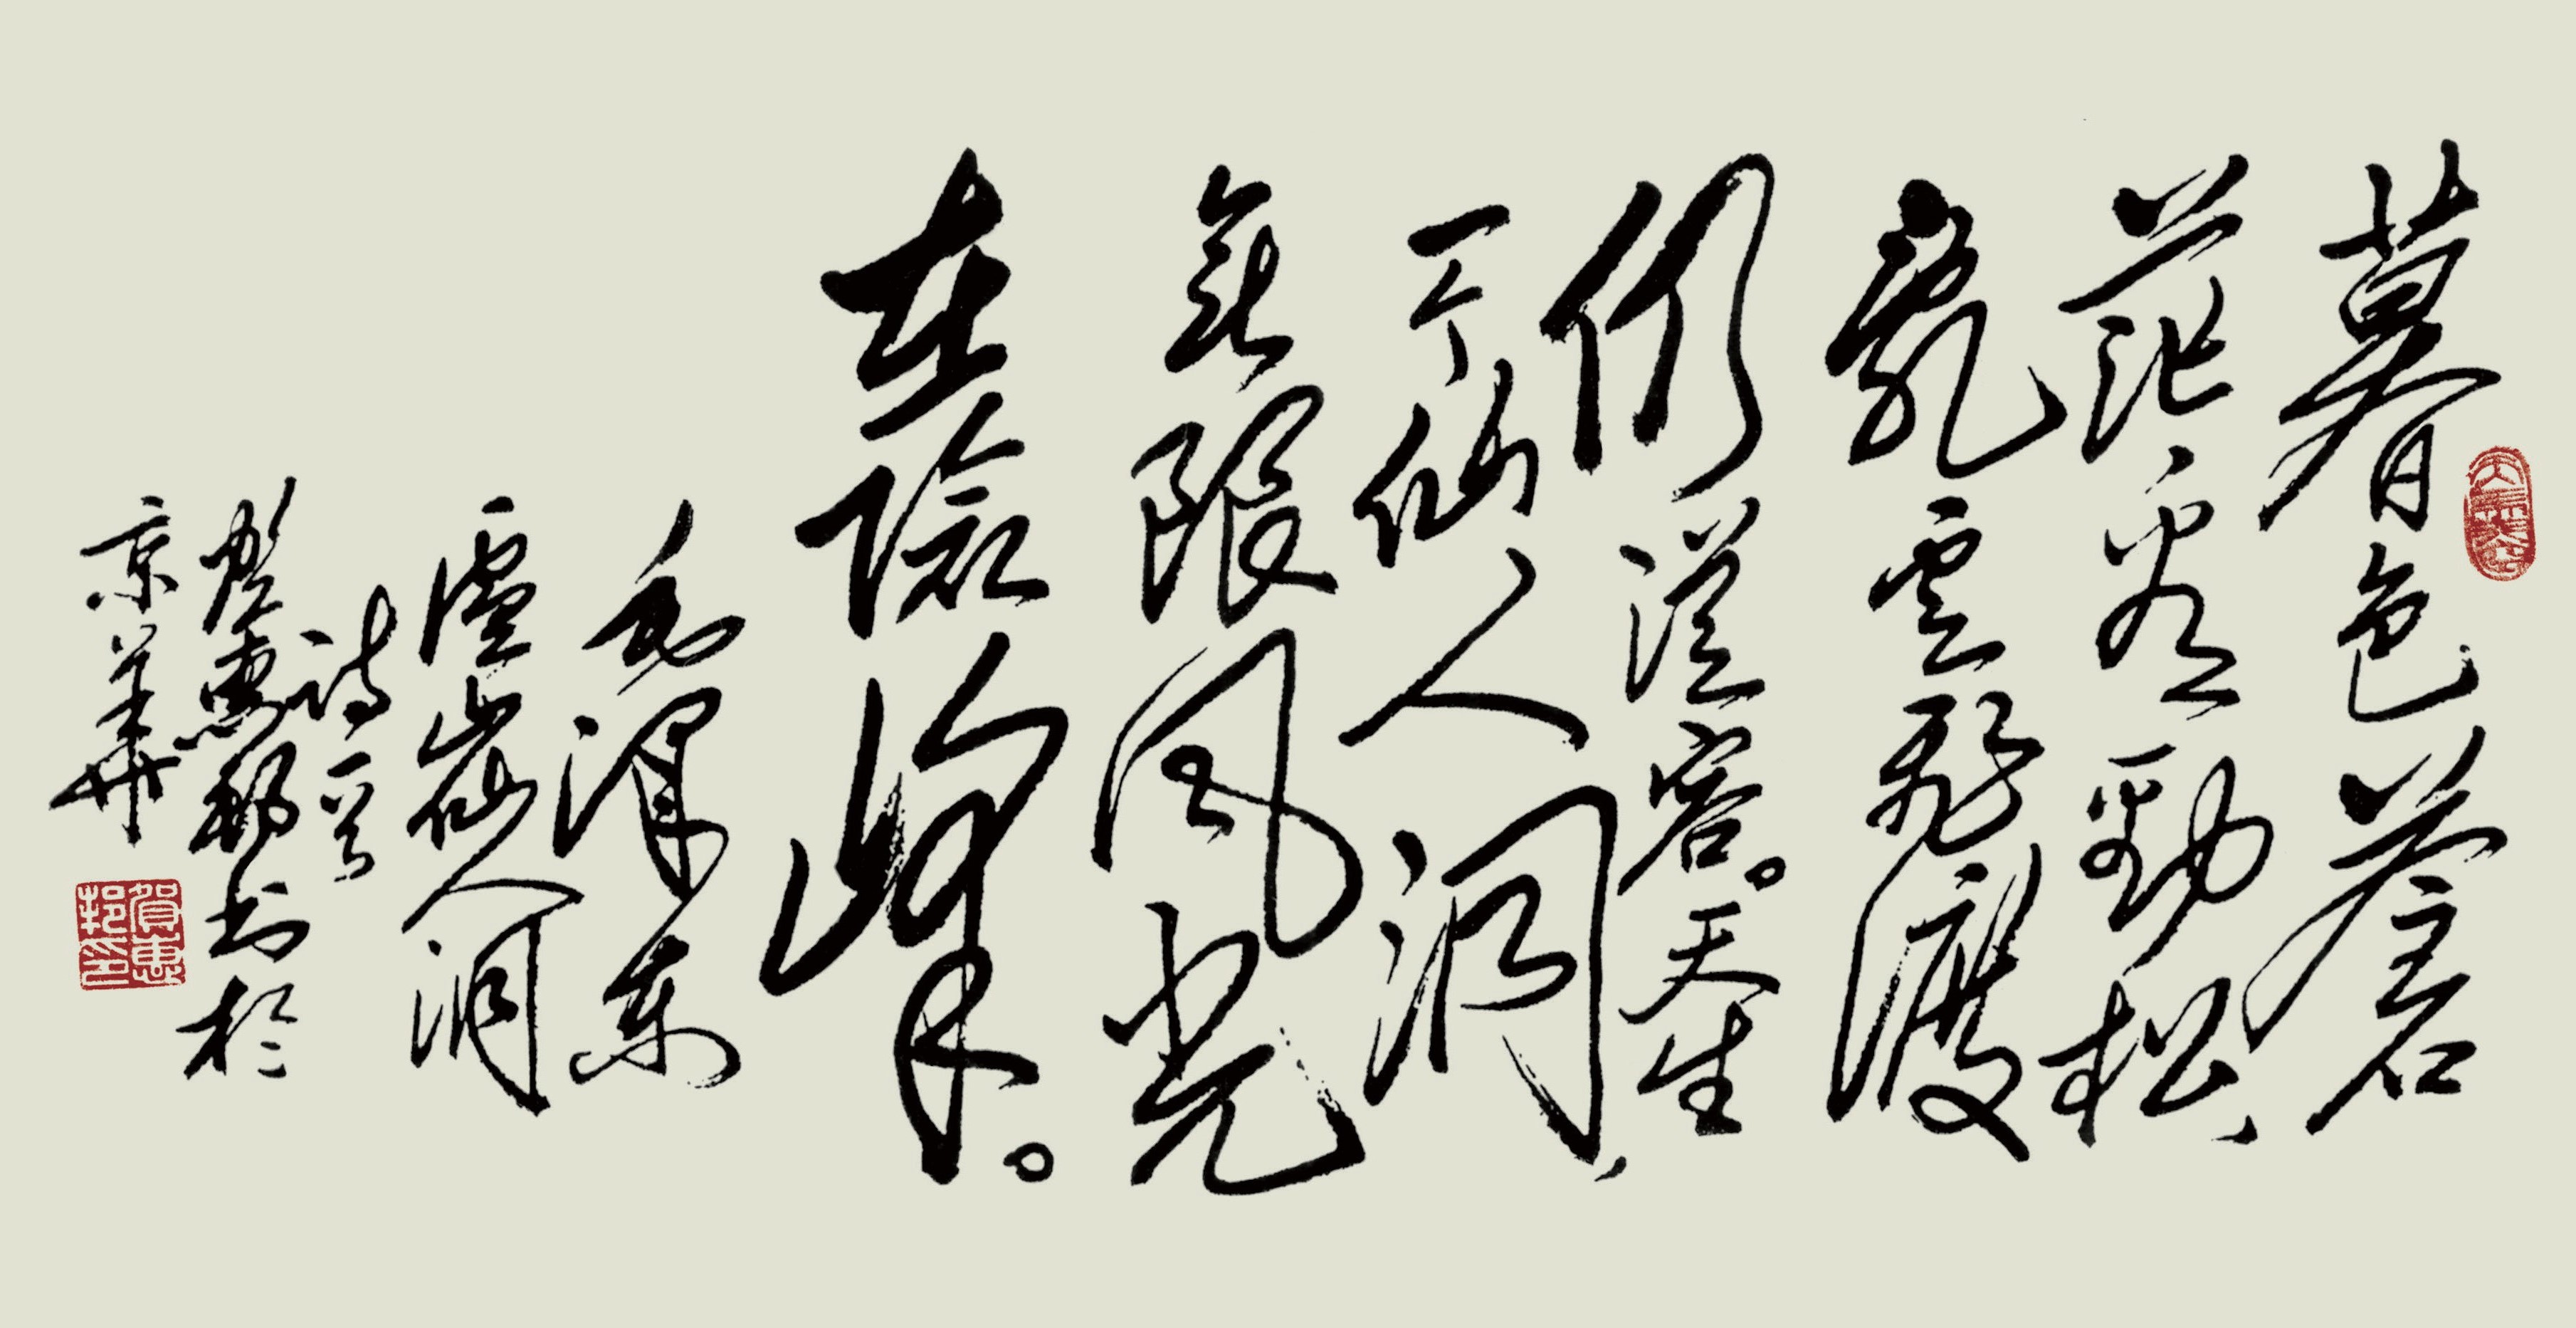 暮色蒼
茫看勁松、
亂雲飛渡
仍從容。天生
一个仙人洞、
無限風光
在險峰。
毛澤東
廬山仙人洞
詩一首
賀惠邦书於
京華
賀惠邦印